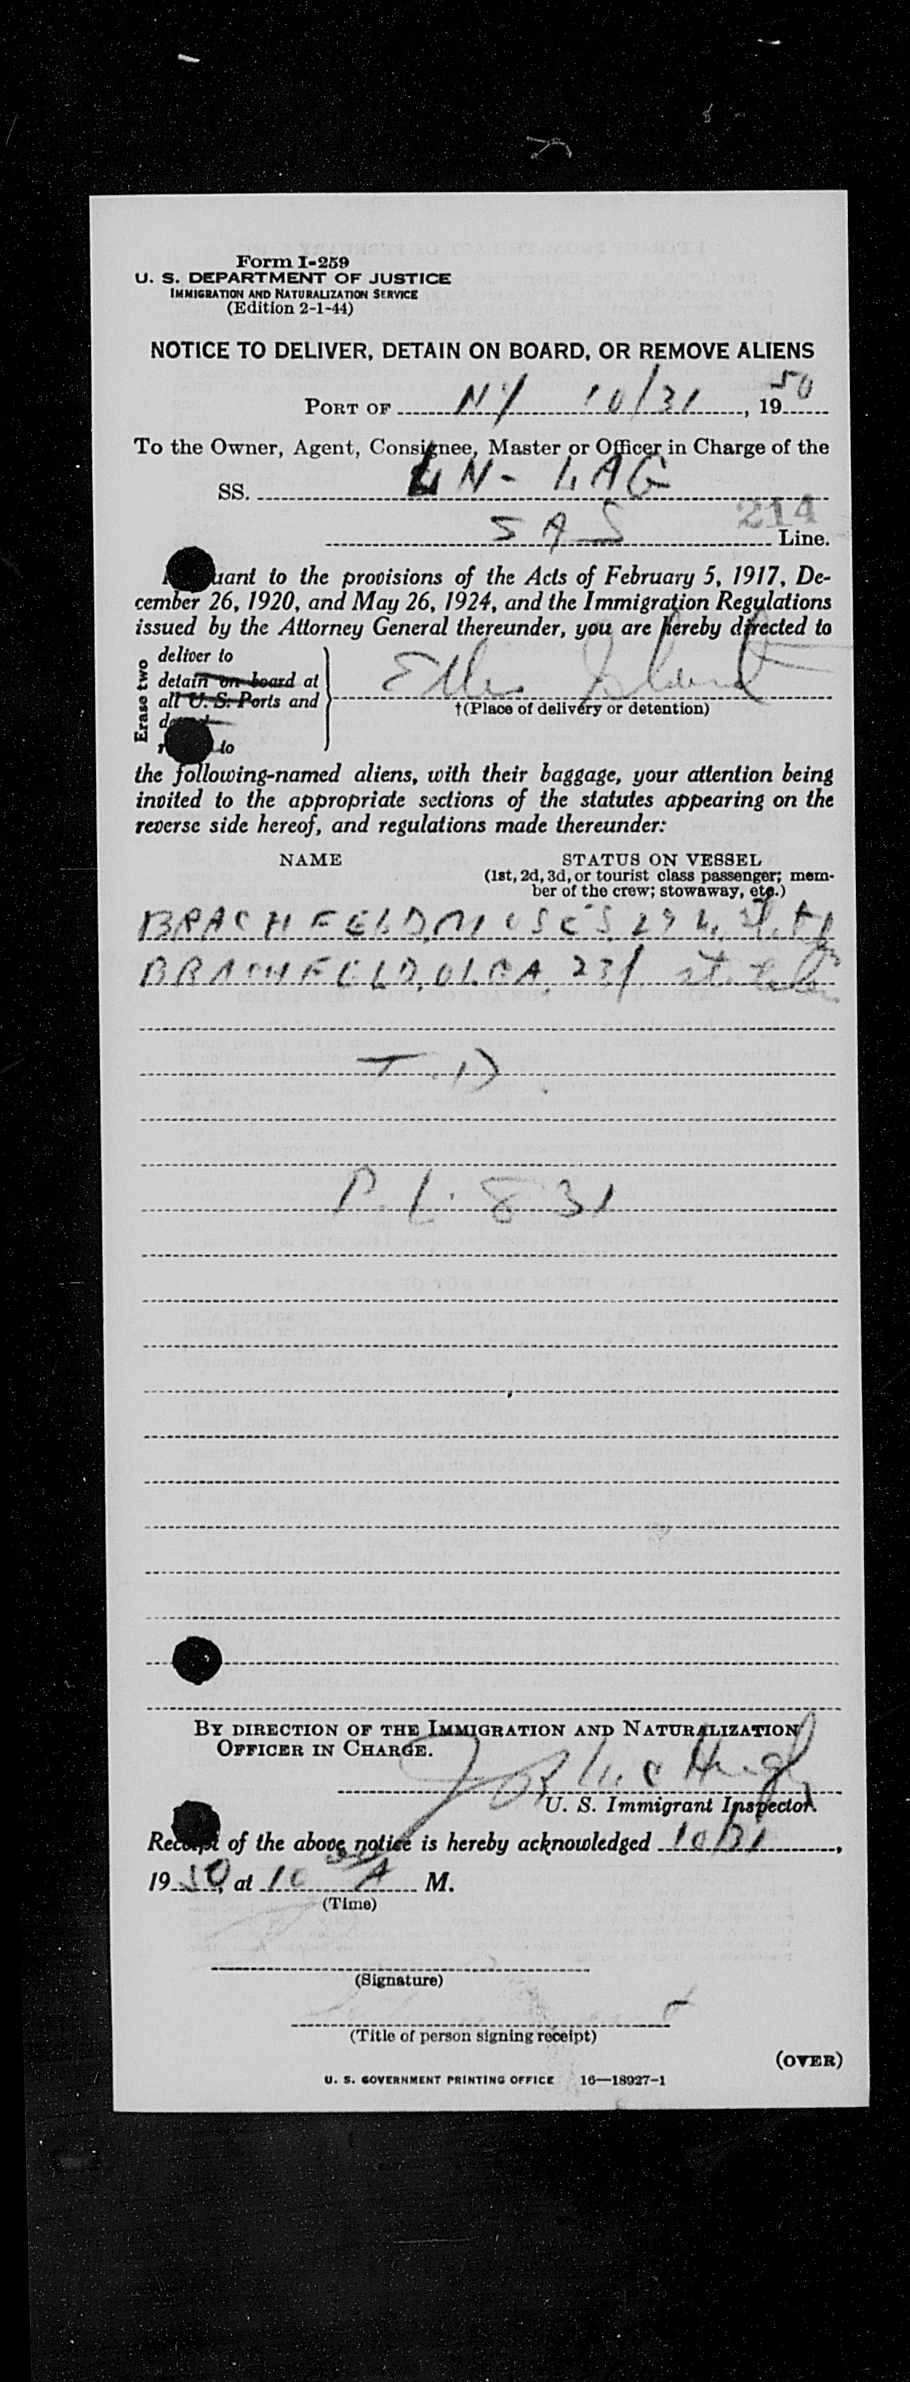 Form I-259
U. S. DEPARTMENT OF JUSTICE
IMMIGRATION AND NATURALIZATION SERVICE
(Edition 2-1-44)
NOTICE TO DELIVER, DETAIN ON BOARD, OR REMOVE ALIENS
PORT OF NY 10/31, 1950
To the Owner, Agent, Consignee, Master or Officer in Charge of the
SS. LN-LAG
214
SAS Line.
uant to the provisions of the Acts of February 5, 1917, De-
cember 26, 1920, and May 26, 1924, and the Immigration Regulations
issued by the Attorney General thereunder, you are hereby directed to
Erase two
deliver to
detain on board at
all U. S. Ports and
to
Ellis Island
†(Place of delivery or detention)
the following-named aliens, with their baggage, your attention being
invited to the appropriate sections of the statutes appearing on the
reverse side hereof, and regulations made thereunder:
NAME STATUS ON VESSEL
(1st, 2d, 3d, or tourist class passenger; mem-
ber of the crew; stowaway, etc.)
BRACHFELD, MOSES, 29
BRACHFELD, OLGA, 23
T.D.
P.L. 831
BY DIRECTION OF THE IMMIGRATION AND NATURALIZATION
OFFICER IN CHARGE.
McHugh
U. S. Immigrant Inspector.
Receipt of the above notice is hereby acknowledged 10/31,
1950, at 10 A M.
(Time)
(Signature)
(Title of person signing receipt)
(OVER)
U. S. GOVERNMENT PRINTING OFFICE 16—18927-1